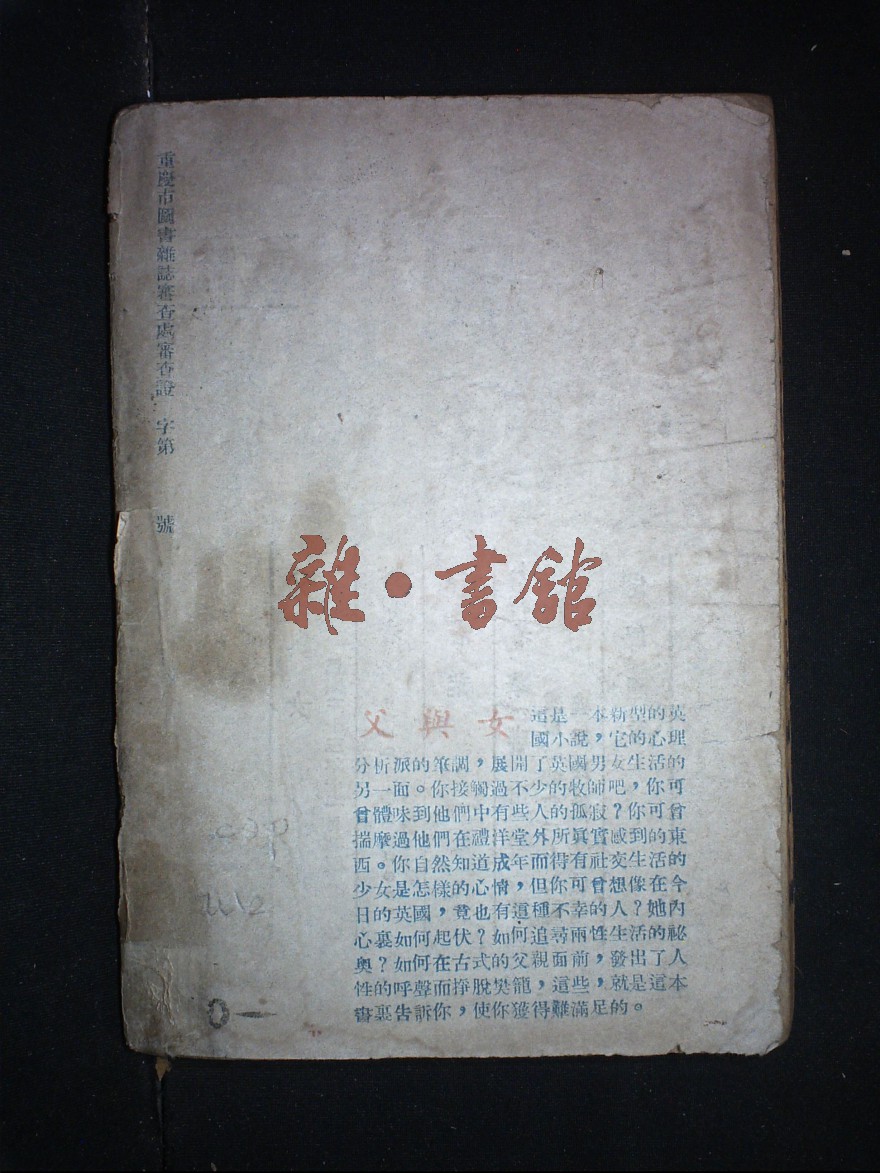 重慶市圖書雜誌審查處審查證 字第 號
雜·書館
父與女
這是一本新型的英
國小說，它的心理
分析派的筆調，展開了英國男女生活的
另一面。你接觸過不少的牧師吧，你可
曾體味到他們中有些人的孤寂？你可曾
揣摩過他們在禮洋堂外所眞實感到的東
西。你自然知道成年而得有社交生活的
少女是怎樣的心情，但你可曾想像在今
日的英國，竟也有這種不幸的人？她內
心裏如何起伏？如何追尋兩性生活的祕
奧？如何在古式的父親面前，發出了人
性的呼聲而掙脫樊籠，這些，就是這本
書裏告訴你，使你獲得難滿足的。